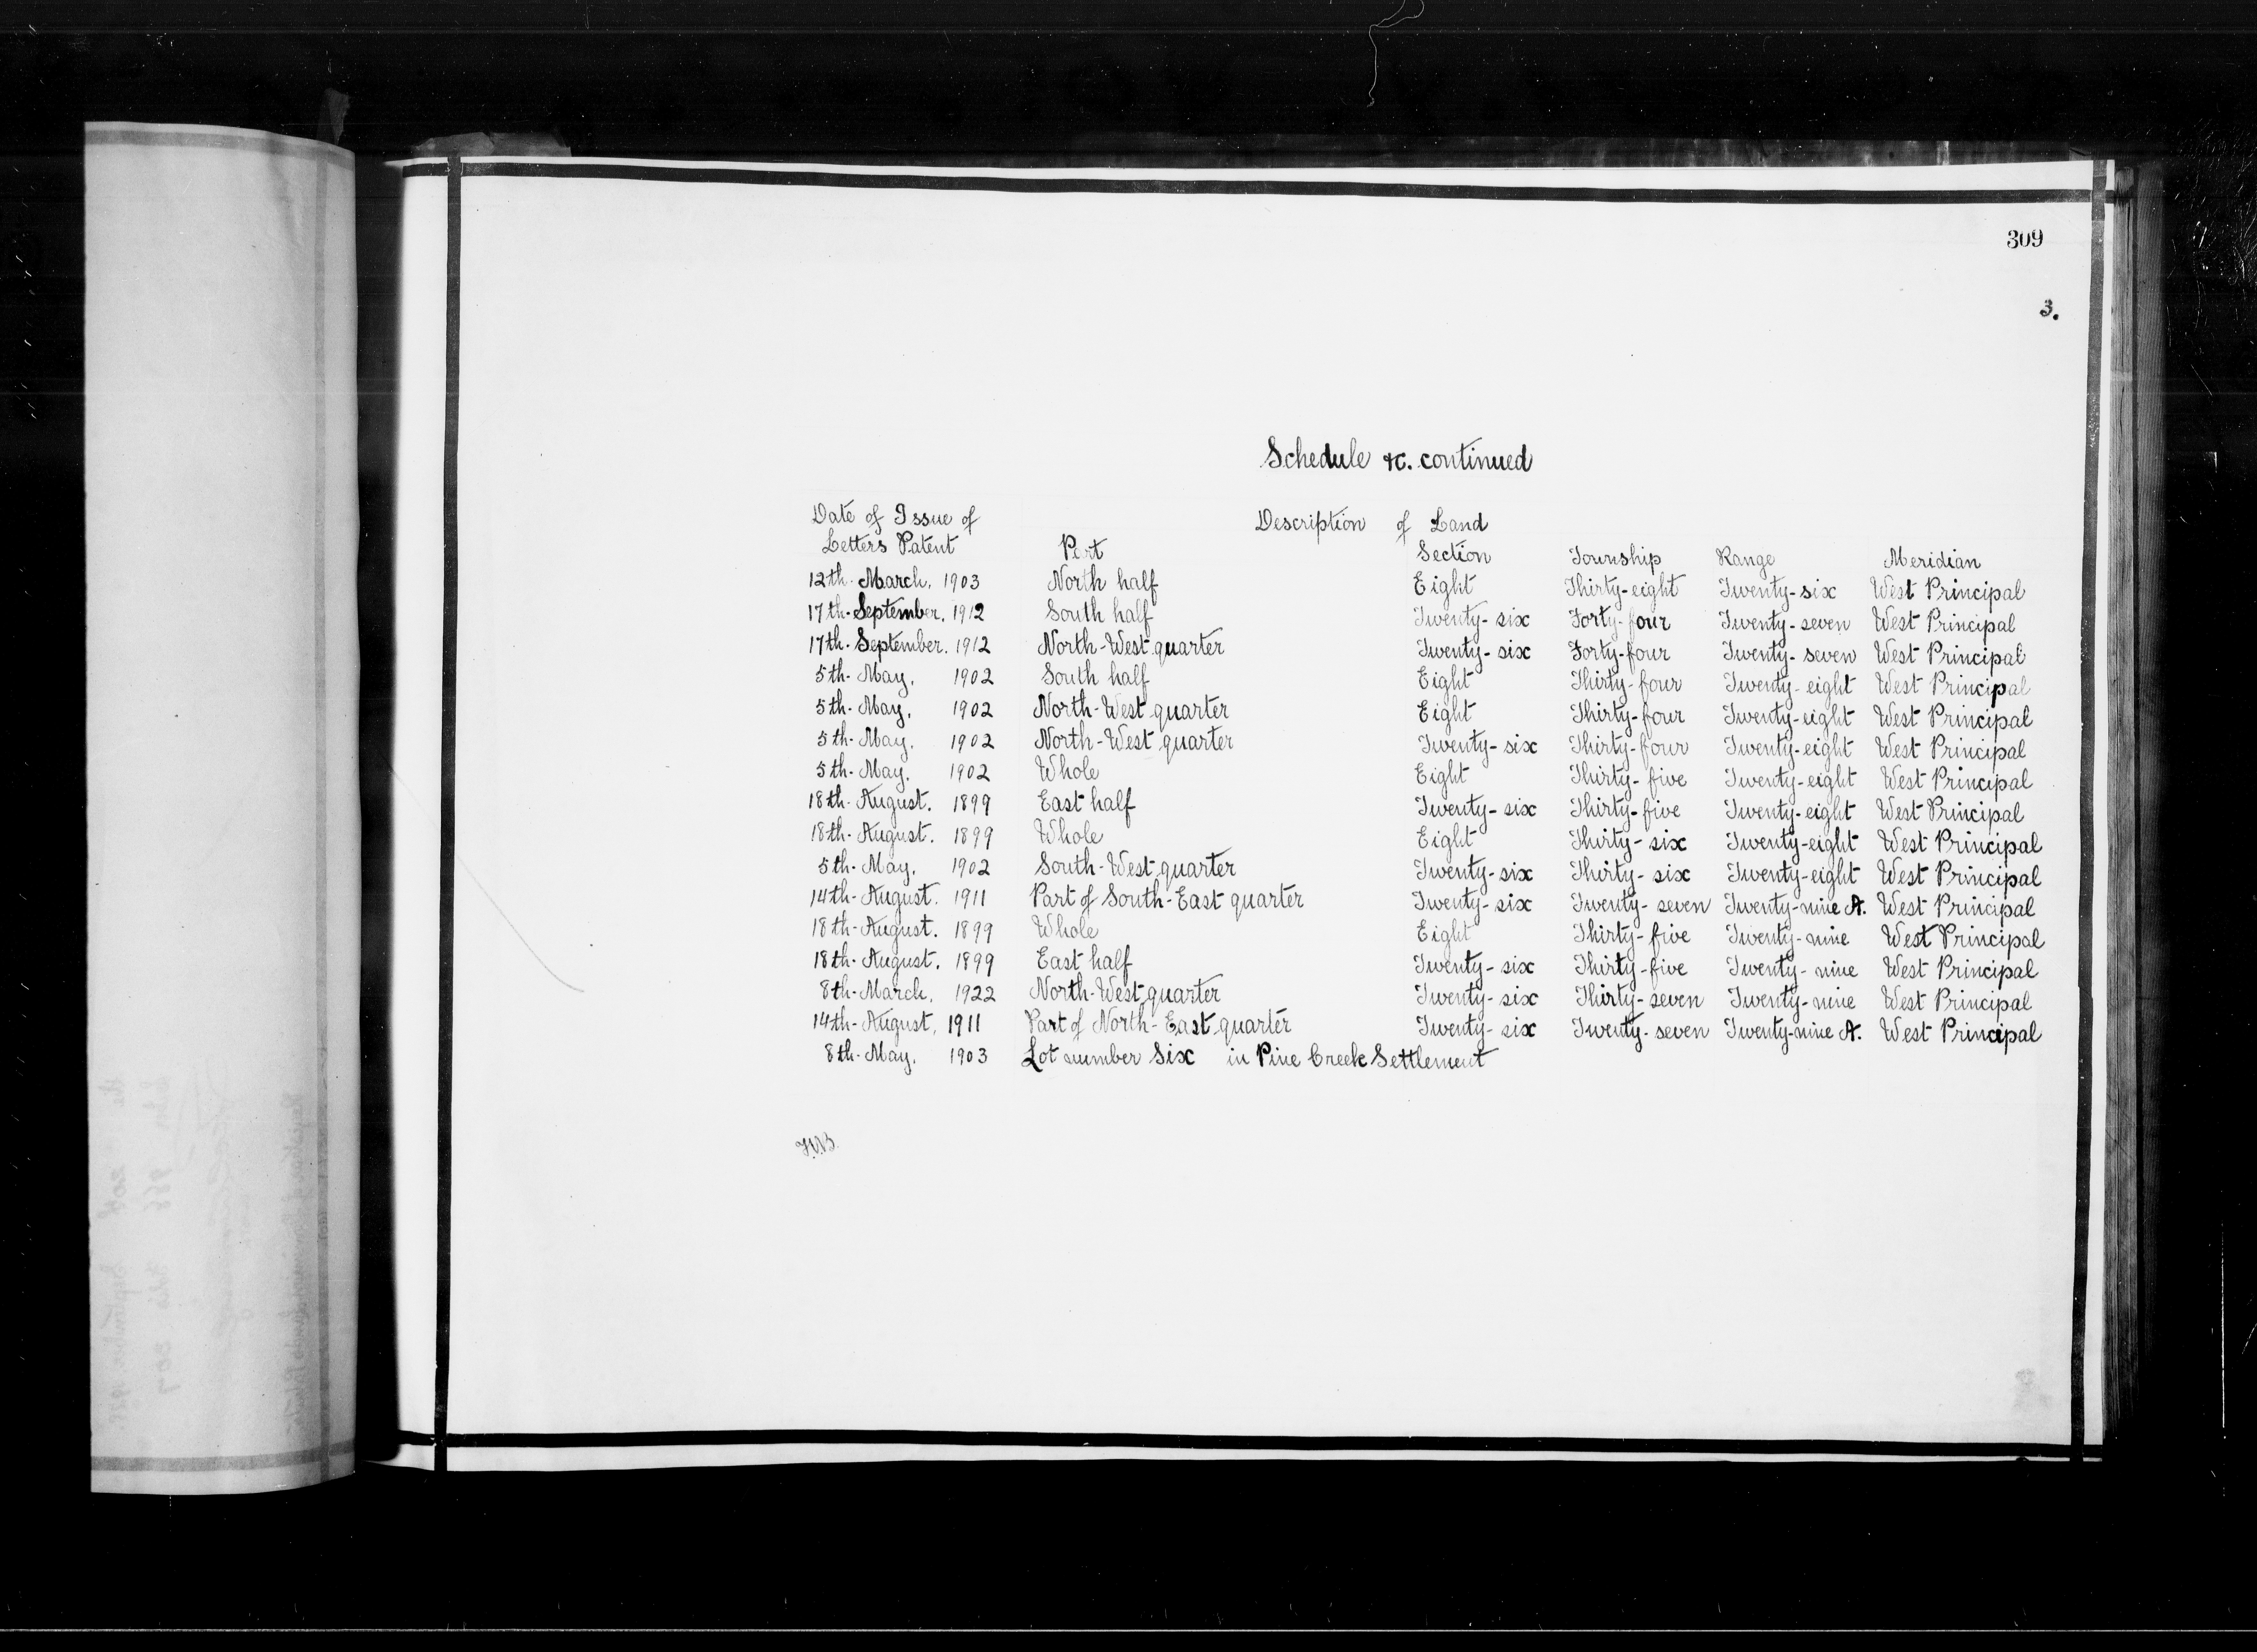 309
3.
Schedule &c. continued
Date of Issue of Description of Land
Letters Patent Part Section Township Range Meridian
12th. March. 1903 North half Eight Thirty-eight Twenty-six West Principal
17th. September. 1912 South half Twenty-six Forty-four Twenty-seven West Principal
17th. September. 1912 North-West quarter Twenty-six Forty-four Twenty-seven West Principal
5th. May. 1902 South half Eight Thirty-four Twenty-eight West Principal
5th. May. 1902 North-West quarter Eight Thirty-four Twenty-eight West Principal
5th. May. 1902 North-West quarter Twenty-six Thirty-four Twenty-eight West Principal
5th. May. 1902 Whole Eight Thirty-five Twenty-eight West Principal
18th. August. 1899 East half Twenty-six Thirty-five Twenty-eight West Principal
18th. August. 1899 Whole Eight Thirty-six Twenty-eight West Principal
5th. May. 1902 South-West quarter Twenty-six Thirty-six Twenty-eight West Principal
14th. August. 1911 Part of South-East quarter Twenty-six Twenty-seven Twenty-nine A. West Principal
18th. August. 1899 Whole Eight Thirty-five Twenty-nine West Principal
18th. August. 1899 East half Twenty-six Thirty-five Twenty-nine West Principal
8th. March. 1922 North-West quarter Twenty-six Thirty-seven Twenty-nine West Principal
14th. August, 1911 Part of North-East quarter Twenty-six Twenty-seven Twenty-nine A. West Principal
8th. May. 1903 Lot number Six in Pine Creek Settlement